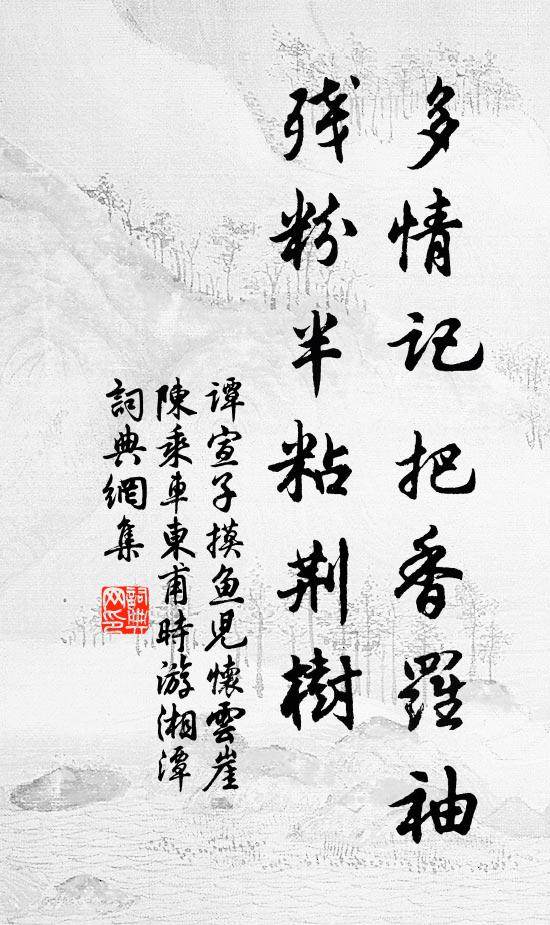 多情记把香羅袖
残粉半粘荆樹
谭宣子摸鱼児懐雲崖
陳乘車東甫時游湘潭
詞典網集
詞典網印